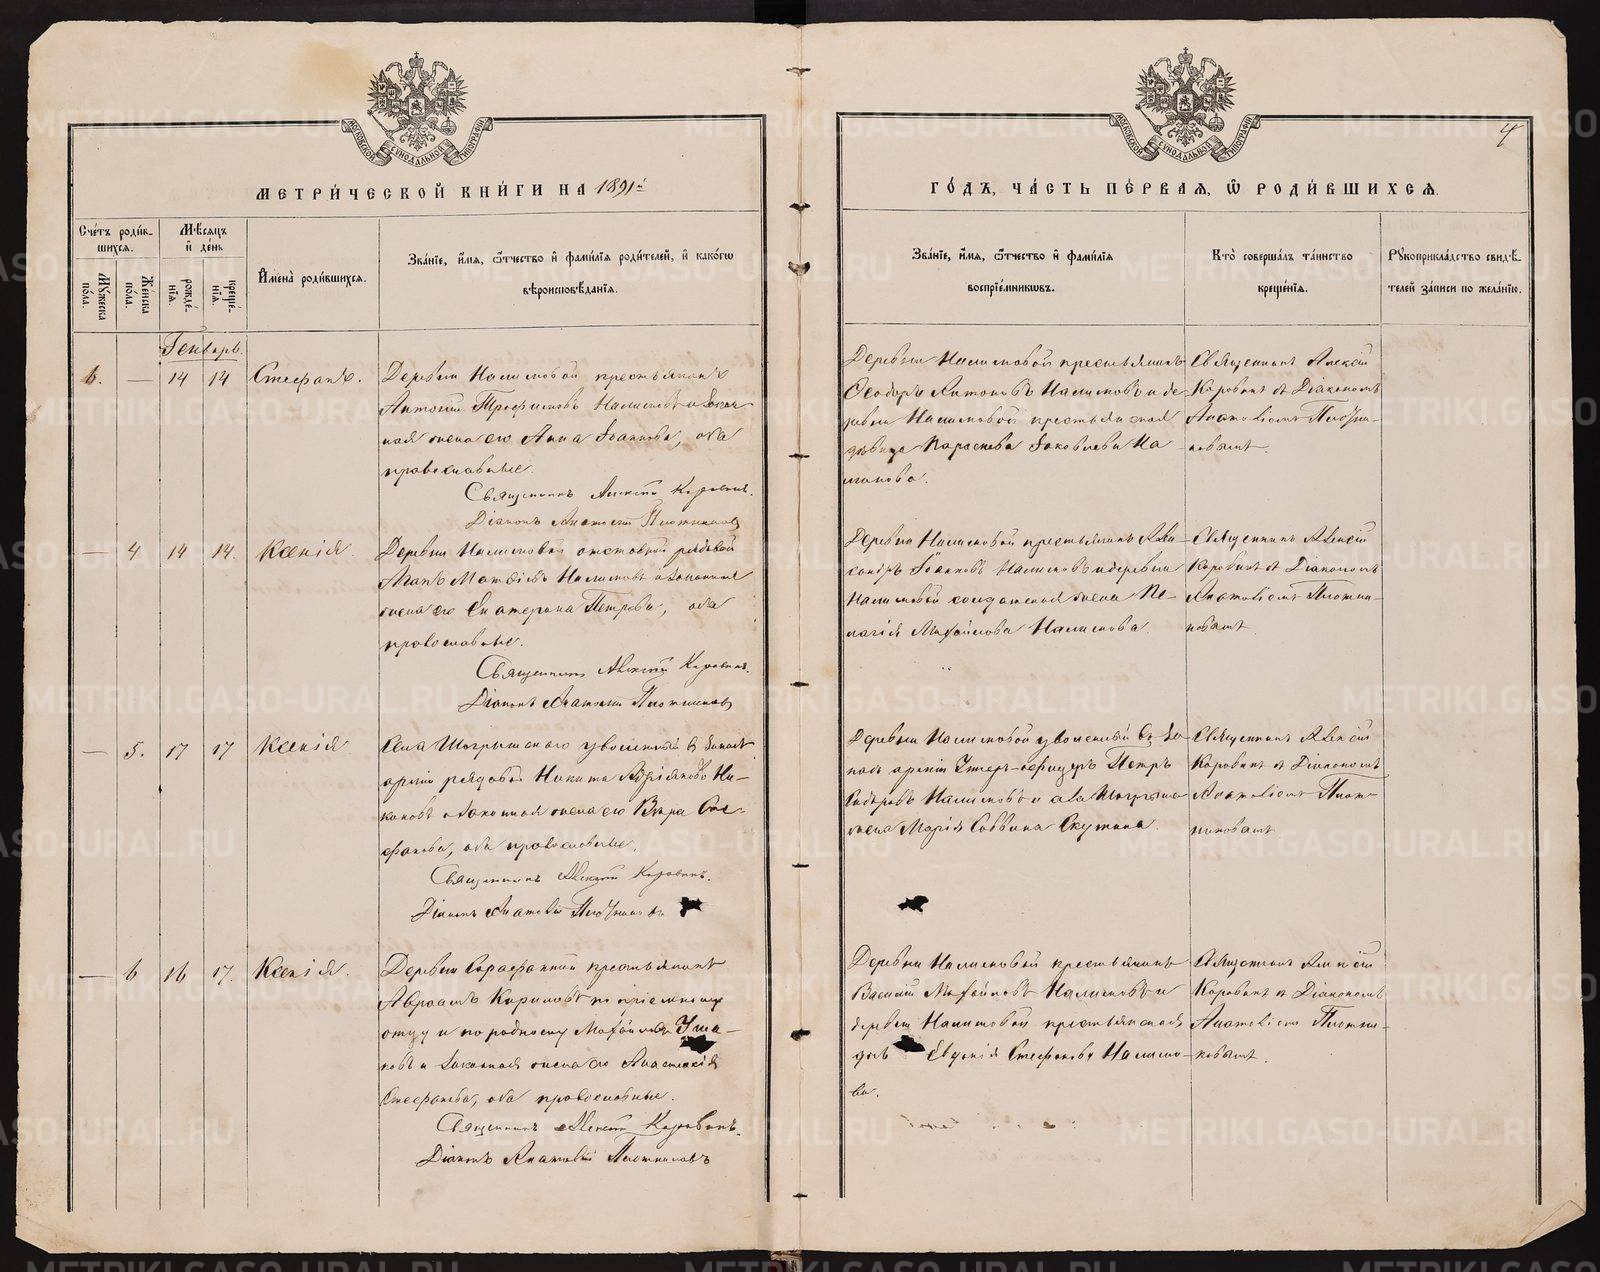 МОСКОВСКОЙ СѴНОДАЛЬНОЙ ТИПОГРАФІИ
МЕТРИ́ЧЕСКОЙ КНИ́ГИ НА 1891й
Сче́тъ роди́в-
шихся.
Мѣ́сяцъ
и҆ де́нь
Мꙋ́жеска по́ла.
Же́нска по́ла.
рожде́-
нїѧ.
креще́-
нїѧ.
И҆мена̀ роди́вшихсѧ.
Зва́нїе, и҆́мѧ, ѻ҆́тчество и҆ фами́лїѧ роди́телей, и҆ како́гѡ
вѣроисповѣ́данїѧ.
Генварь.
6. — 14 14 Стефанъ.
Деревни Налимовой крестьянинъ
Антоній Трофимовъ Налимовъ и закон-
ная жена его Анна Іоаннова, оба
православные.
Священникъ Алексій Коровинъ.
Діаконъ Анатолій Плотниковъ
— 4 14 14. Ксенія.
Деревни Налимовой отставной рядовой
Иванъ Матѳіевъ Налимовъ и законная
жена его Екатерина Петрова, оба
православные.
Священникъ Алексій Коровинъ.
Діаконъ Анатолій Плотниковъ
— 5. 17 17 Ксенія
Села уволенный въ запасъ
арміи рядовой Никита Ни-
коновъ и законная жена его Вѣра Сте-
фанова, оба православные.
Священникъ Алексій Коровинъ.
Діаконъ Анатолій Плотниковъ
— 6 16 17. Ксенія.
Деревни крестьянинъ
Авраамъ Кириловъ по пріемному
отцу и по родному Михайловъ Уша-
ковъ и законная жена его Анастасія
Стефанова, оба православные.
Священникъ Алексій Коровинъ.
Діаконъ Анатолій Плотниковъ
4
МОСКОВСКОЙ СѴНОДАЛЬНОЙ ТИПОГРАФІИ
ГО́ДЪ, ЧА́СТЬ ПЕ́РВАѦ, Ѽ РОДИ́ВШИХСѦ.
Зва́нїе, и҆́мѧ, ѻ҆́тчество и҆ фами́лїѧ
воспрїе́мникωвъ.
Кто̀ соверша́лъ та́инство
креще́нїѧ.
Рꙋкоприкла́дство свидѣ́-
телей за́писи по жела́нїю.
Деревни Налимовой крестьянинъ
Ѳеодоръ Антоновъ Налимовъ и де-
ревни Налимовой крестьянская
дѣвица Параскева Іаковлева На
лимова.
Священникъ Алексій
Коровинъ съ Діакономъ
Анатоліемъ Плотни-
ковымъ.
Деревни Налимовой крестьянинъ Але-
ксандръ Іоанновъ Налимовъ и деревни
Налимовой солдатская жена Пе-
лагія Михайлова Налимова
Священникъ Алексій
Коровинъ съ Діакономъ
Анатоліемъ Плотни-
ковымъ
Деревни Налимовой уволенный въ за-
пасъ арміи Унтеръ-офицеръ Петръ
Сидоровъ Налимовъ и села
жена Марія Саввина Скутина
Священникъ Алексій
Коровинъ съ Діакономъ
Анатоліемъ Плот-
никовымъ
Деревни Налимовой крестьянинъ
Василій Михайловъ Налимовъ и
деревни Налимовой крестьянская
Евдокія Стефанова Налимо-
ва.
Священникъ Алексій
Коровинъ съ Діакономъ
Анатоліемъ Плотни-
ковымъ.
METRIKI.GASO-URAL.RU